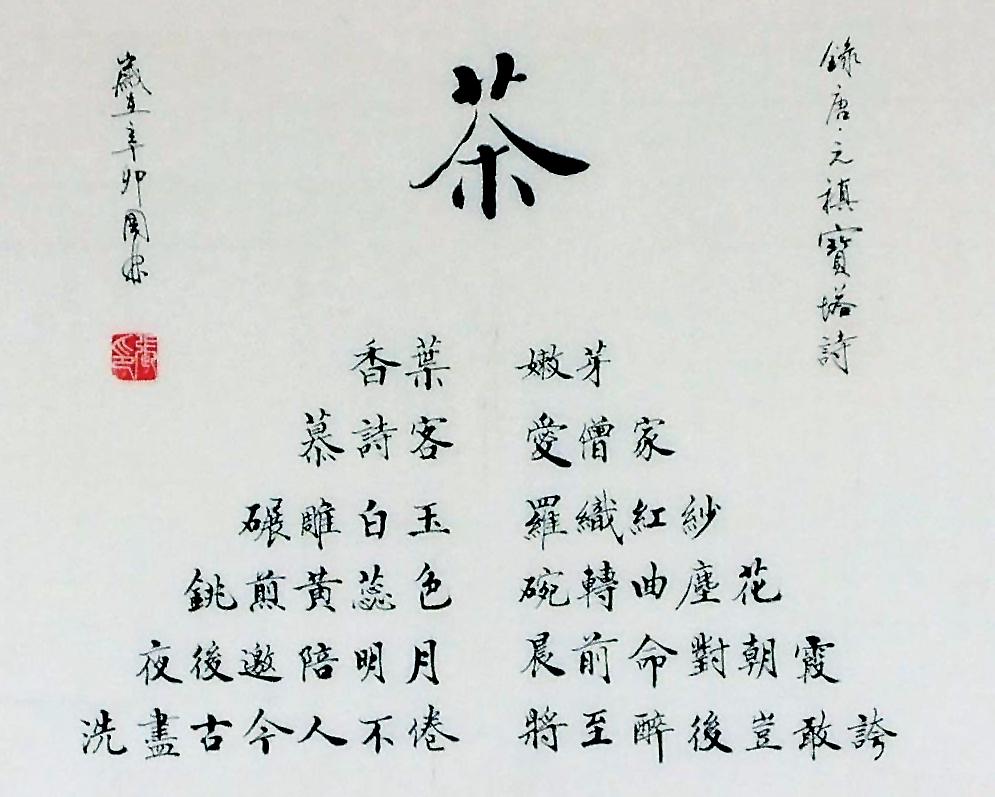 錄唐元禛寶塔詩
茶
香葉 嫩芽
慕詩客 愛僧家
碾雕白玉 羅織紅紗
銚煎黃蕊色 碗轉曲塵花
夜後邀陪明月 晨前命對朝霞
洗盡古今人不倦 將至醉後豈敢誇
歲在辛卯國